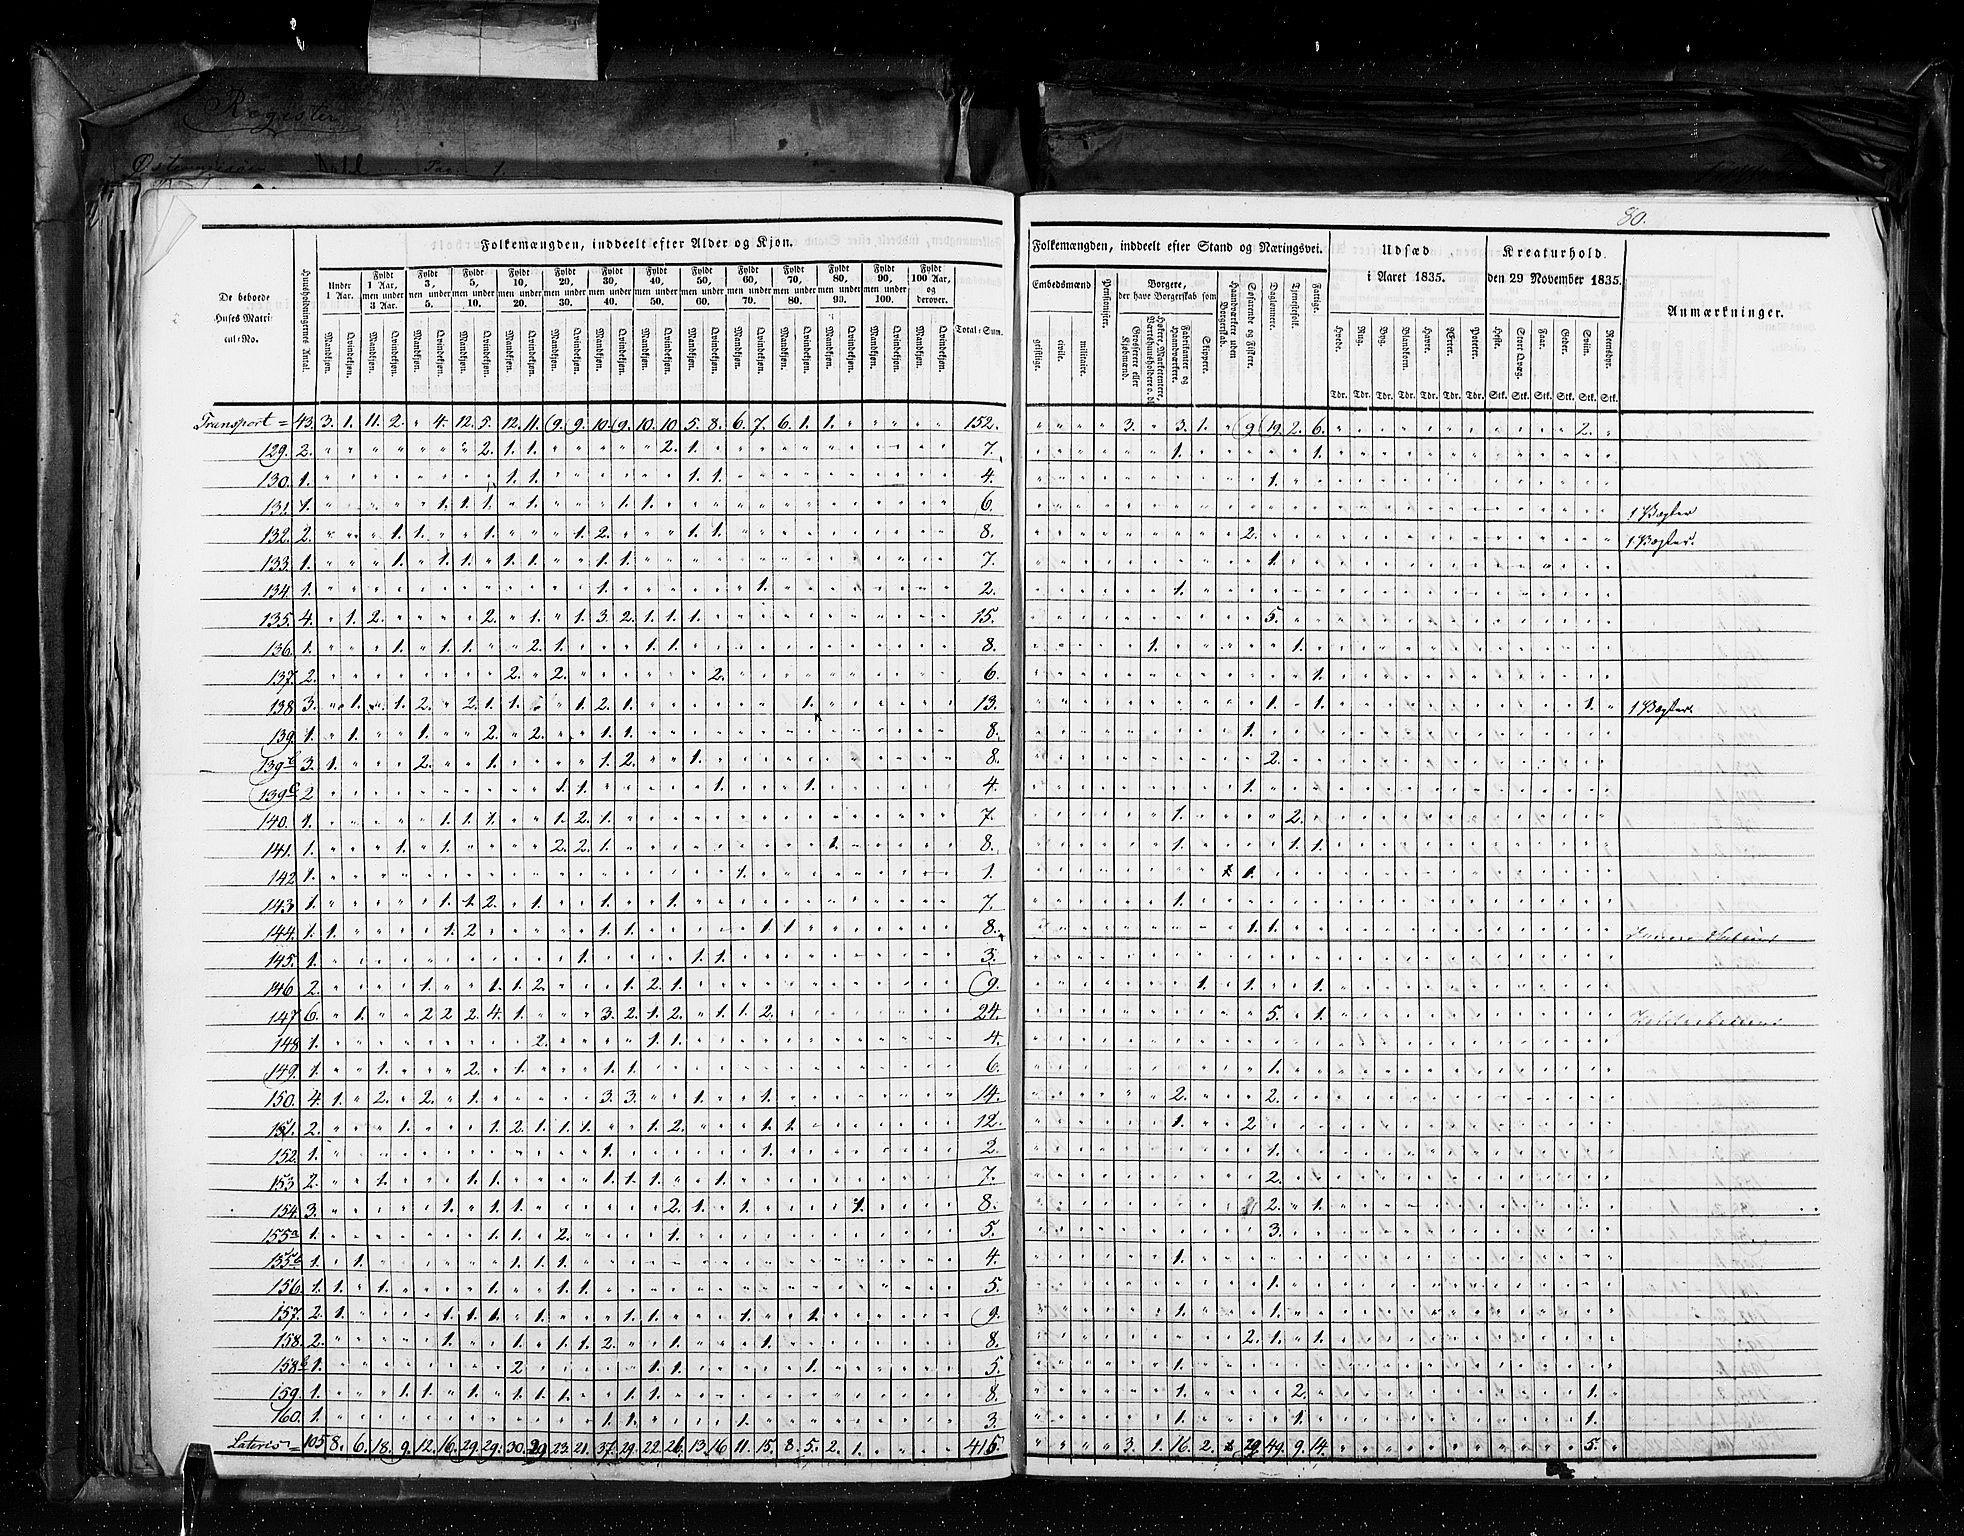 Register
80.
Folkemængden, inddeelt efter Alder og Kjøn.
Folkemængden, inddeelt efter Stand og Næringsvei.
Udsæd i Aaret 1835.
Kreaturhold den 29 November 1835.
Anmærkninger.
De beboede Huses Matricul-No.
Huusholdningernes Antal.
Under 1 Aar.
Fyldt 1 Aar, men under 3 Aar.
Fyldt 3, men under 5.
Fyldt 5, men under 10.
Fyldt 10, men under 20.
Fyldt 20, men under 30.
Fyldt 30, men under 40.
Fyldt 40, men under 50.
Fyldt 50, men under 60.
Fyldt 60, men under 70.
Fyldt 70, men under 80.
Fyldt 80, men under 90.
Fyldt 90, men under 100.
Fyldt 100 Aar, og derover.
Total-Sum.
Mandkjøn. Qvindekjøn.
Embedsmænd
geistlige. civile. militaire.
Pensionister.
Borgere, der have Borgerskab som
Grosserere eller Kjøbmænd.
Fabrikanter og Haandværkere.
Skippere.
Haandværkere uden Borgerskab.
Søfarende og Fiskere.
Daglønnere.
Tjenestefolk.
Fattige.
Hvede. Rug. Byg. Blandkorn. Havre. Erter. Poteter.
Tdr. Tdr. Tdr. Tdr. Tdr. Tdr. Tdr.
Heste. Stort Qvæg. Faar. Geder. Sviin. Rensdyr.
Stk. Stk. Stk. Stk. Stk. Stk.
Transport = 43. 3. 1. 11. 2. " 4. 12. 5. 12. 11. 9. 9. 10. 9. 10. 10. 5. 8. 6. 7. 6. 1. 1. 152. 3. " 3. 1. " 9 19. 2. 6. 2.
129. 2. 2. 1. 1. 2. 1. 7. 1. 1.
130. 1. 1. 1. 1. 1. 4. 1.
131. 1. 1. 1. 1. 1. 1. 1. 6. 1 Vægter
132. 2. 1. 1. 1. 1. 2. 1. 1. 8. 2. 1 Vægter.
133. 1. 1. 1. 1. 1. 1. 1. 1. 7. 1.
134. 1. 1. 1. 2. 1.
135. 4. 1. 2. 2. 1. 1. 3. 2. 1. 1. 1. 15. 5.
136. 1. 1. 1. 1. 2. 1. 1. 1. 8. 1. 1.
137. 2. 2. 2. 2. 6. 1.
138. 3. 1. 1. 2. 2. 1. 1. 1. 2. 1. 1. 13. 1. 1. 1. 1 Vægter.
139. 1. 1. 1. 2. 2. 1. 1. 8. 1.
139 b 3. 1. 2. 1. 1. 2. 1. 8. 2.
139 c 2 1. 1. 1. 1. 4. 1.
140. 1. 1. 1. 1. 1. 2. 1. 7. 1. 2.
141. 1. 1. 1. 2. 2. 1. 1. 8. 1. 1. 1.
142 1. 1. 1. 1.
143 1. 1. 1. 2. 1. 1. 1. 7. 1.
144. 1. 1. 1. 2 1. 1. 1. 1. 8. 1. 1.
145. 1. 1. 1. 1. 3.
146 2. 1. 1. 1. 2 1. 2. 1. 9. 1. 1. 1.
147 6. 1. 2 2 2. 4. 1. 3. 2. 1. 2. 1. 1. 2. 24. 5. 1.
148 1. 2. 1. 1. 4.
149. 1. 1. 2. 1. 1. 1. 6. 1.
150. 4. 1. 2. 2. 1. 3. 3. 1. 1. 14. 2. 2.
151. 2. 1. 1. 2. 1. 1. 1. 1. 2. 1. 1. 12. 1. 2
152. 1. 1. 1. 2. 1.
153 2. 1. 1. 1. 1. 1. 1. 1. 7. 2.
154. 3. 1. 1. 1. 2. 1. 1. 1. 8. 2. 1.
155 a 1. 1. 1. 2. 1. 5. 3.
155 b 1. 1. 1. 1. 1. 4. 1.
156. 1. 1. 1. 1. 1. 1. 5. 1.
157. 2. 1. 1. 1. 1. 1. 1. 1. 1. 1. 9. 1. 1.
158. 2. 1. 1. 1. 1. 2. 1. 1. 8. 2. 1. 1.
158 b 1. 2 1. 1. 1. 5. 1.
159. 1. 1. 1. 1. 1. 1. 1. 1. 1. 8. 1. 2. 1.
160. 1. 1. 1. 1. 3. 1. 1. 1.
Lateris = 105 8. 6. 18. 9. 12. 16. 29. 29. 30. 29 23. 21. 37. 29. 22. 26. 13. 16 11. 15. 8. 5. 2. 1. 415. 3. 1. 16. 2. 29 49. 9. 14. 5.